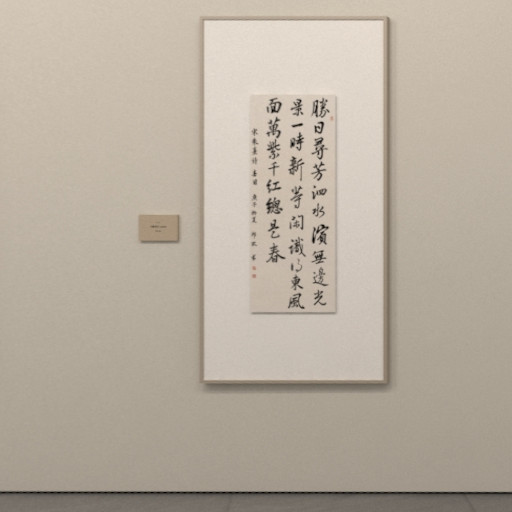 勝日尋芳泗水濱無邊光
景一時新等閑識得東風
面萬紫千紅總是春
宋朱熹詩春日